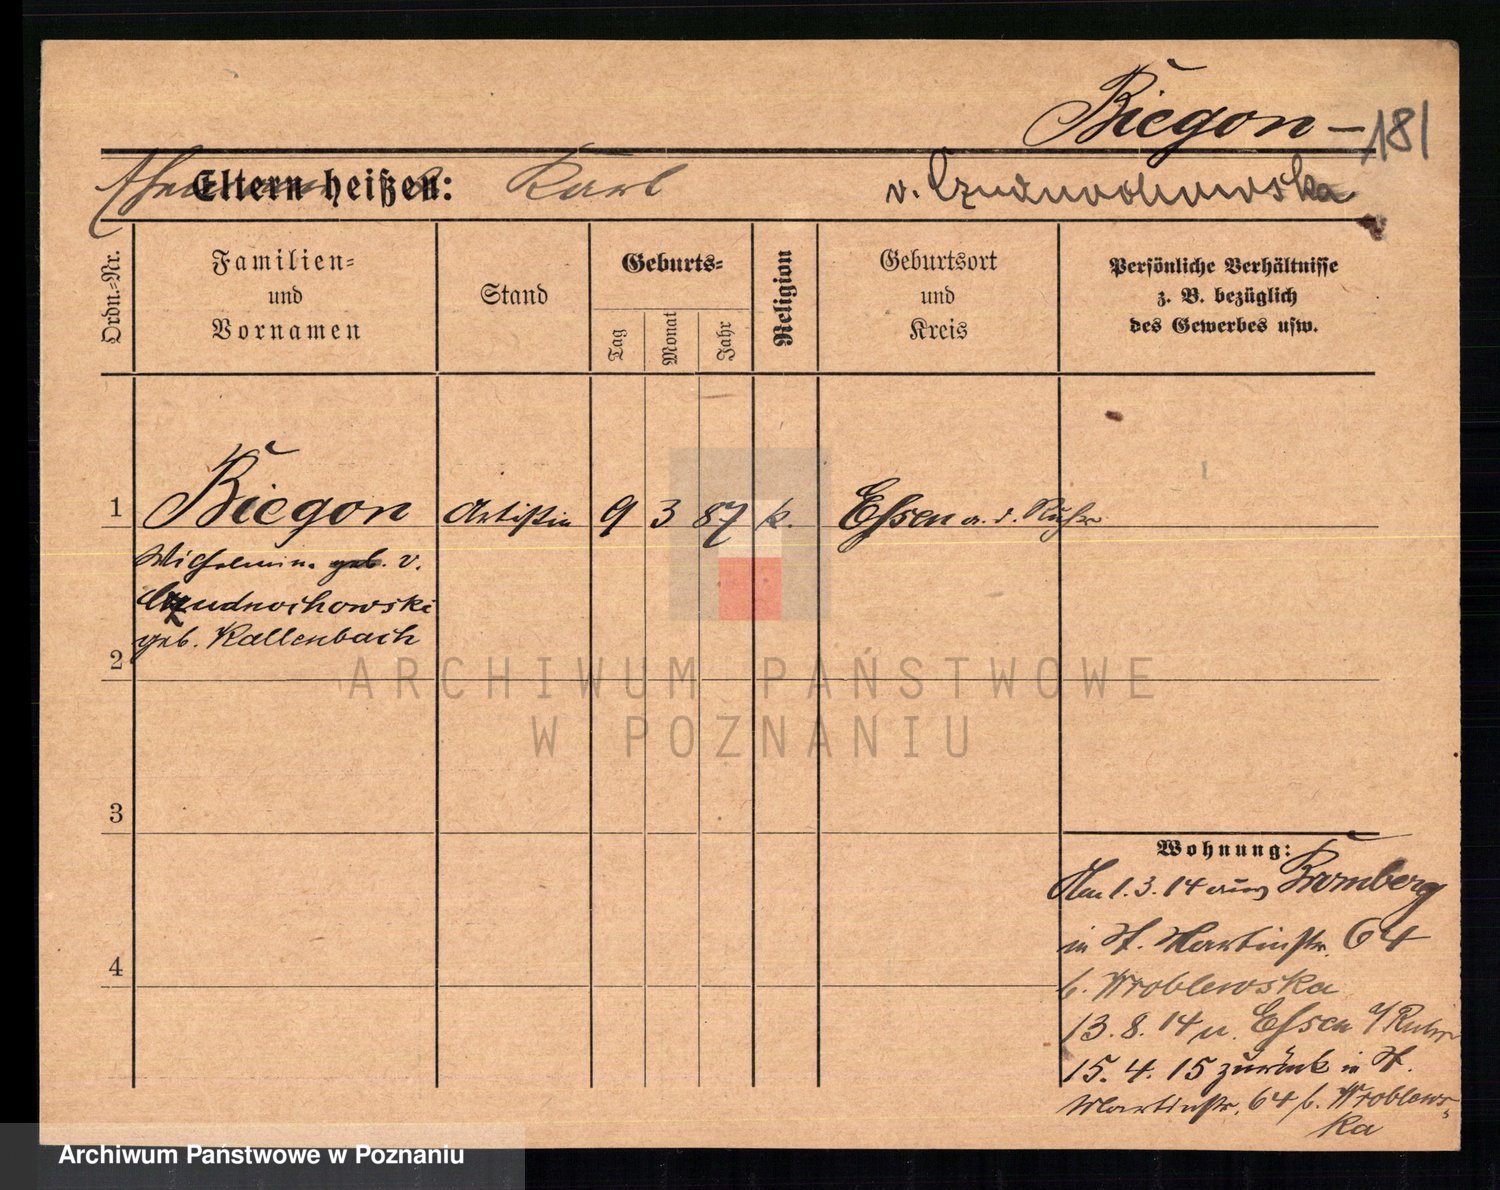 Biegon –
181
Eltern heißen: Karl
v. Czudnochowska
Ordn.=Nr.
Familien=
und
Vornamen
Stand
Geburts=
Tag
Monat
Jahr
Religion
Geburtsort
und
Kreis
Persönliche Verhältnisse
z. B. bezüglich
des Gewerbes usw.
1 Biegon Artistin 9 3 87 k. Essen a. d. Ruhr
Wilhelmin. geb. v.
Czudnochowski
geb. Kallenbach
2
3
4
Wohnung:
1.3.14 aus Bromberg
in St. Martinstr. 64
b. Wroblewska
13. 8. 14 n. Essen a/Ruhr
15. 4. 15 zurück in St.
Martinstr. 64 b. Wroblews-
ka
ARCHIWUM PAŃSTWOWE
W POZNANIU
Archiwum Państwowe w Poznaniu